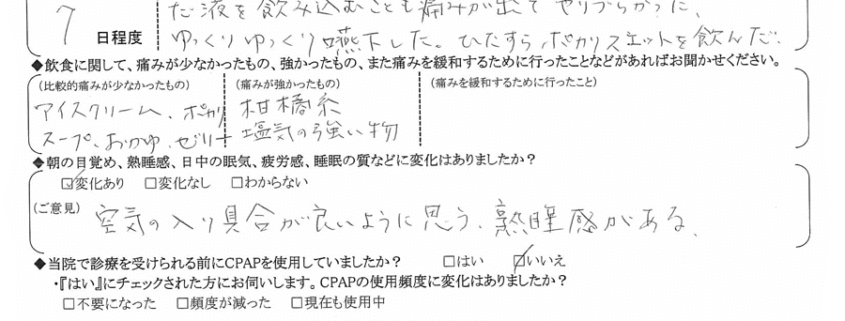 だ液を飲み込むことも痛みが出てやりづらかった、
7 日程度
ゆっくりゆっくり嚥下した。ひたすらポカリスエットを飲んだ
◆飲食に関して、痛みが少なかったもの、強かったもの、また痛みを緩和するために行ったことなどがあればお聞かせください。
(比較的痛みが少なかったもの) (痛みが強かったもの) (痛みを緩和するために行ったこと)
アイスクリーム、ポカリ 柑橘系
スープ、おかゆ、ゼリー 塩気の強い物
◆朝の目覚め、熟睡感、日中の眠気、疲労感、睡眠の質などに変化はありましたか？
☑変化あり □変化なし □わからない
(ご意見) 空気の入り具合が良いように思う、熟睡感がある、
◆当院で診療を受けられる前にCPAPを使用していましたか？ □はい ☑いいえ
・『はい』にチェックされた方にお伺いします。CPAPの使用頻度に変化はありましたか？
□不要になった □頻度が減った □現在も使用中